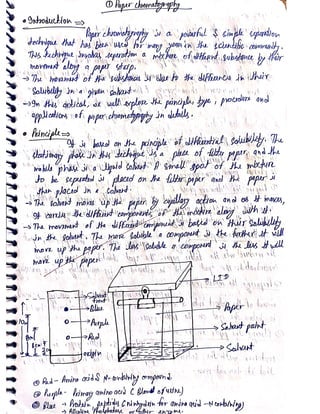 ① Paper chromatography
• Introduction ⇒
Paper chromatography is a powerful & simple separation
technique that has been used for many years in the scientific community.
This technique involves separation a mixture of different substance by their
movement along a paper strip.
→ The movement of the substances is due to the differences in their
Solubility in a given solvent.
→ In this artical, we will explore the principles, type, procedure and
applications of paper chromatography in details.
• Principle ⇒
It is based on the principle of differential solubility. The
stationary phase in this technique is a piece of filter paper, and the
mobile phase is a liquid solvent. A small spot of the mixture
to be separated is placed on the filter paper and the paper is
then placed in a solvent.
→ The solvent moves up the paper by capillary action and as it moves,
it carries the different components of the mixture along with it.
→ The movement of the different component is based on their solubility
in the solvent. The more soluble a component is the farther it will
move up the paper. The less soluble a component is the less it will
move up the paper.
LID
Solvent
front
Blue
Purple
Red
origin
Paper
Solvent point
Solvent
Red - Amino acids N-containing compound
Purple - Primary amino acid (blood & urine)
Blue - Protein, peptides (ninhydrin for amino acid - N containing)